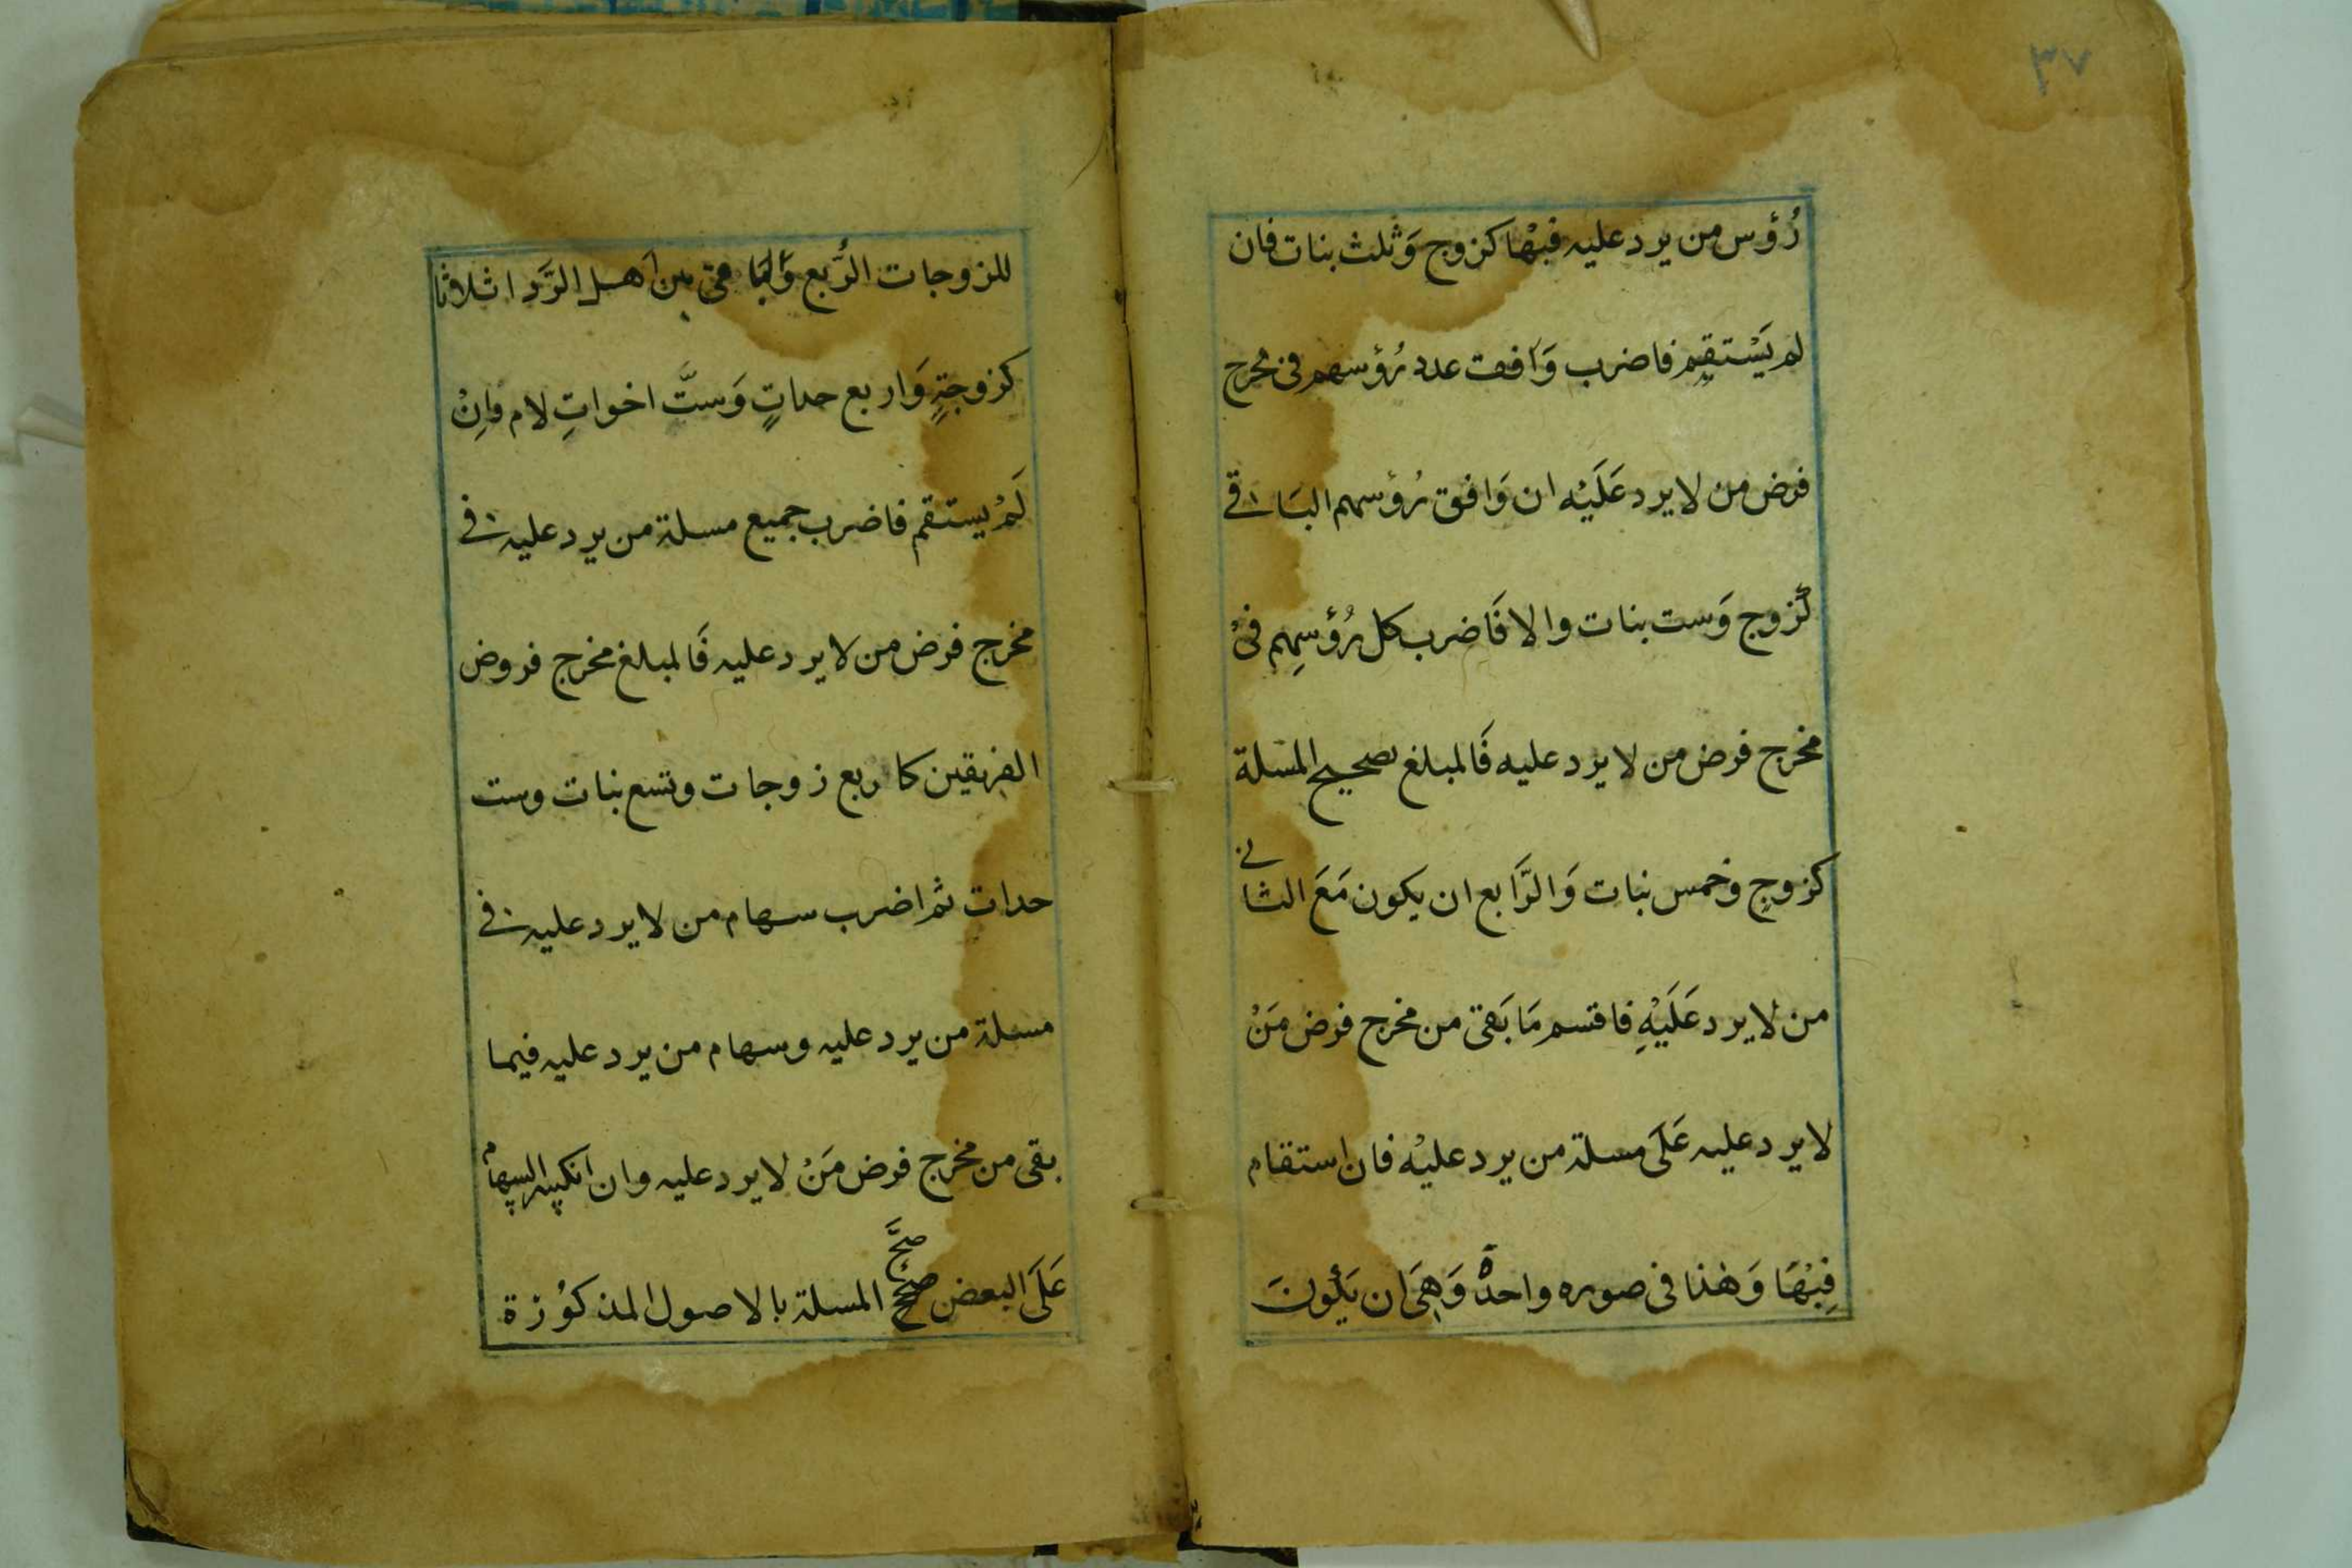 ٣٧
رُؤس من يرد عليه فبْها كزوج وَثلث بنات فان
لم يَسْتقِم فاضرب وَافق عدد رُؤسهم فى مخرج
فرض من لا يرد عَلَيْه ان وَافق رُؤسهم البَاقے
كَزوج وَست بنات والا فَاضرب كل رُؤسِهم فىْ
مخرج فرض من لا يرد عليه فَالمبلغ تصحيح المسلة
كزوجٍ وخمس بنات وَالرَّابع ان يكون مَعَ الثانے
من لا يرد عَلَيْهِ فاقسم مَا بَقىَ من مخرج فرض مَنْ
لا يرد عليه عَلَى مسلة من يرد عليْه فان استقام
فِبْهَا وَهٰذا فى صوره واحدةٌ وَهِىَ ان يَكُونَ
للزوجات الرُّبع وَالبَاقى بين اَهل الرَّد اثلاثا
كزوجةٍ وَاربع جداتٍ وَستَّ اخواتِ لام فاِنْ
لَمْ يستقم فاضرب جميع مسلة من يرد عليه فے
مخرج فرض من لا يرد عليه فَالمبلغ مخرج فروض
الفريقين كاربع زوجات وتسع بنات وست
جدات ثم اضرب سهام من لا يرد عليه فے
مسلة من يرد عليه وسهام من يرد عليه فيما
بقى من مخرج فرض مَنْ لا يرد عليه وان انكسر السهام
عَلَى البعض صحِّح
صحَّ
المسلة بالاصول المذكوُرة